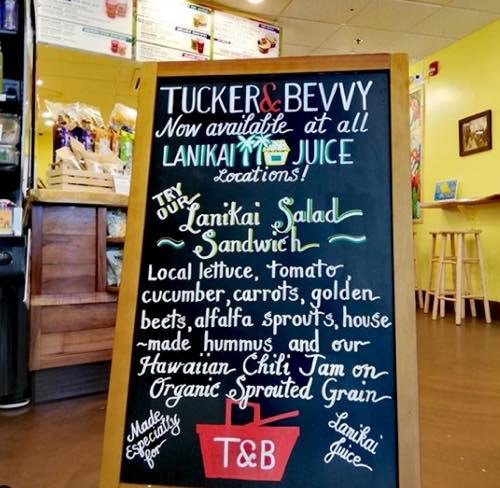 TUCKER & BEVVY
Now available at all
LANIKAI JUICE
Locations!
TRY
OUR
Lanikai Salad
Sandwich
Local lettuce, tomato,
cucumber, carrots, golden
beets, alfalfa sprouts, house
~made hummus and our
Hawaiian Chili Jam on
Organic Sprouted Grain
Made
Especially
for
T&B
Lanikai
Juice